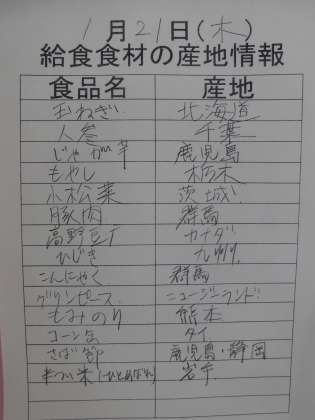 1月21日(木)
給食食材の産地情報
食品名 産地
玉ねぎ 北海道
人参 千葉
じゃが芋 鹿児島
もやし 栃木
小松菜 茨城
豚肉 群馬
高野豆腐 カナダ
ひじき 九州
こんにゃく 群馬
グリンピース ニュージーランド
もみのり 熊本
コーン缶 タイ
さば節 鹿児島・静岡
米(ひとめぼれ) 岩手